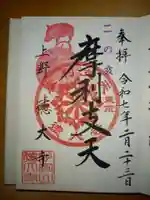 奉拝 令和七年二月二十三日
二の亥
摩利支天
上野 徳大寺